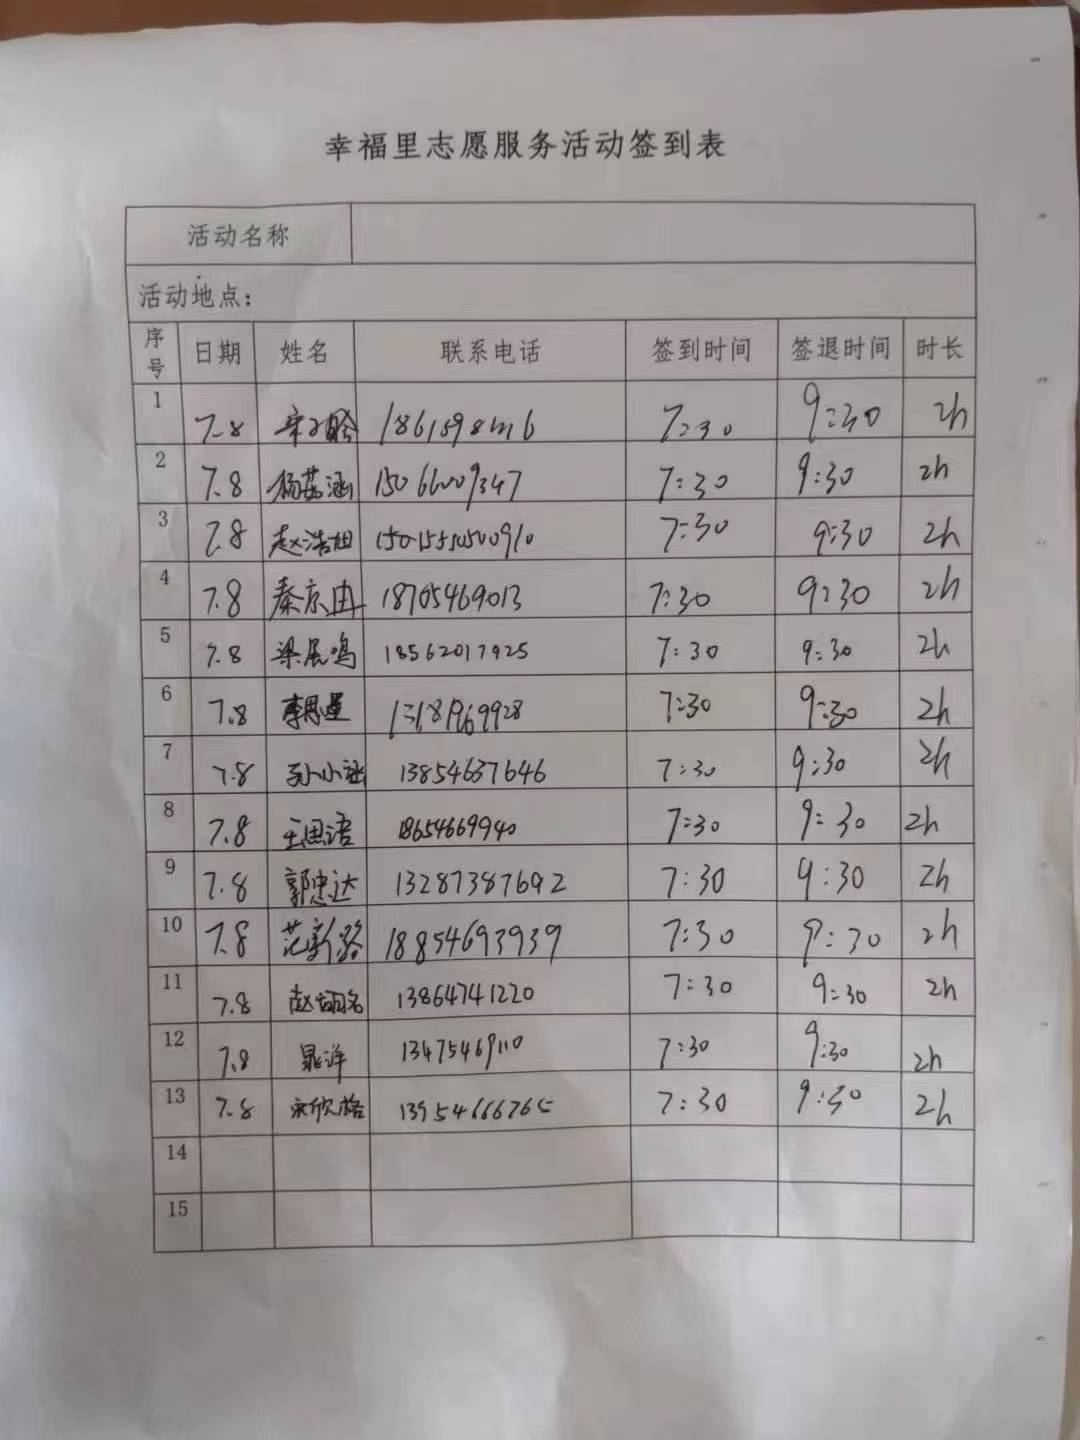 幸福里志愿服务活动签到表
活动名称
活动地点：
序号 日期 姓名 联系电话 签到时间 签退时间 时长
1 7.8 7:30 9:30 2h
2 7.8 杨荔涵 15066009347 7:30 9:30 2h
3 7.8 赵浩旭 7:30 9:30 2h
4 7.8 秦京冉 18705469013 7:30 9:30 2h
5 7.8 梁展鸣 18562017925 7:30 9:30 2h
6 7.8 李思墨 13181969928 7:30 9:30 2h
7 7.8 孙小涵 13854637646 7:30 9:30 2h
8 7.8 王思语 18654669940 7:30 9:30 2h
9 7.8 郭忠达 13287387692 7:30 9:30 2h
10 7.8 范新路 18854693939 7:30 9:30 2h
11 7.8 13864741220 7:30 9:30 2h
12 7.8 晁洋 13475469110 7:30 9:30 2h
13 7.8 宋欣格 13954666765 7:30 9:30 2h
14
15